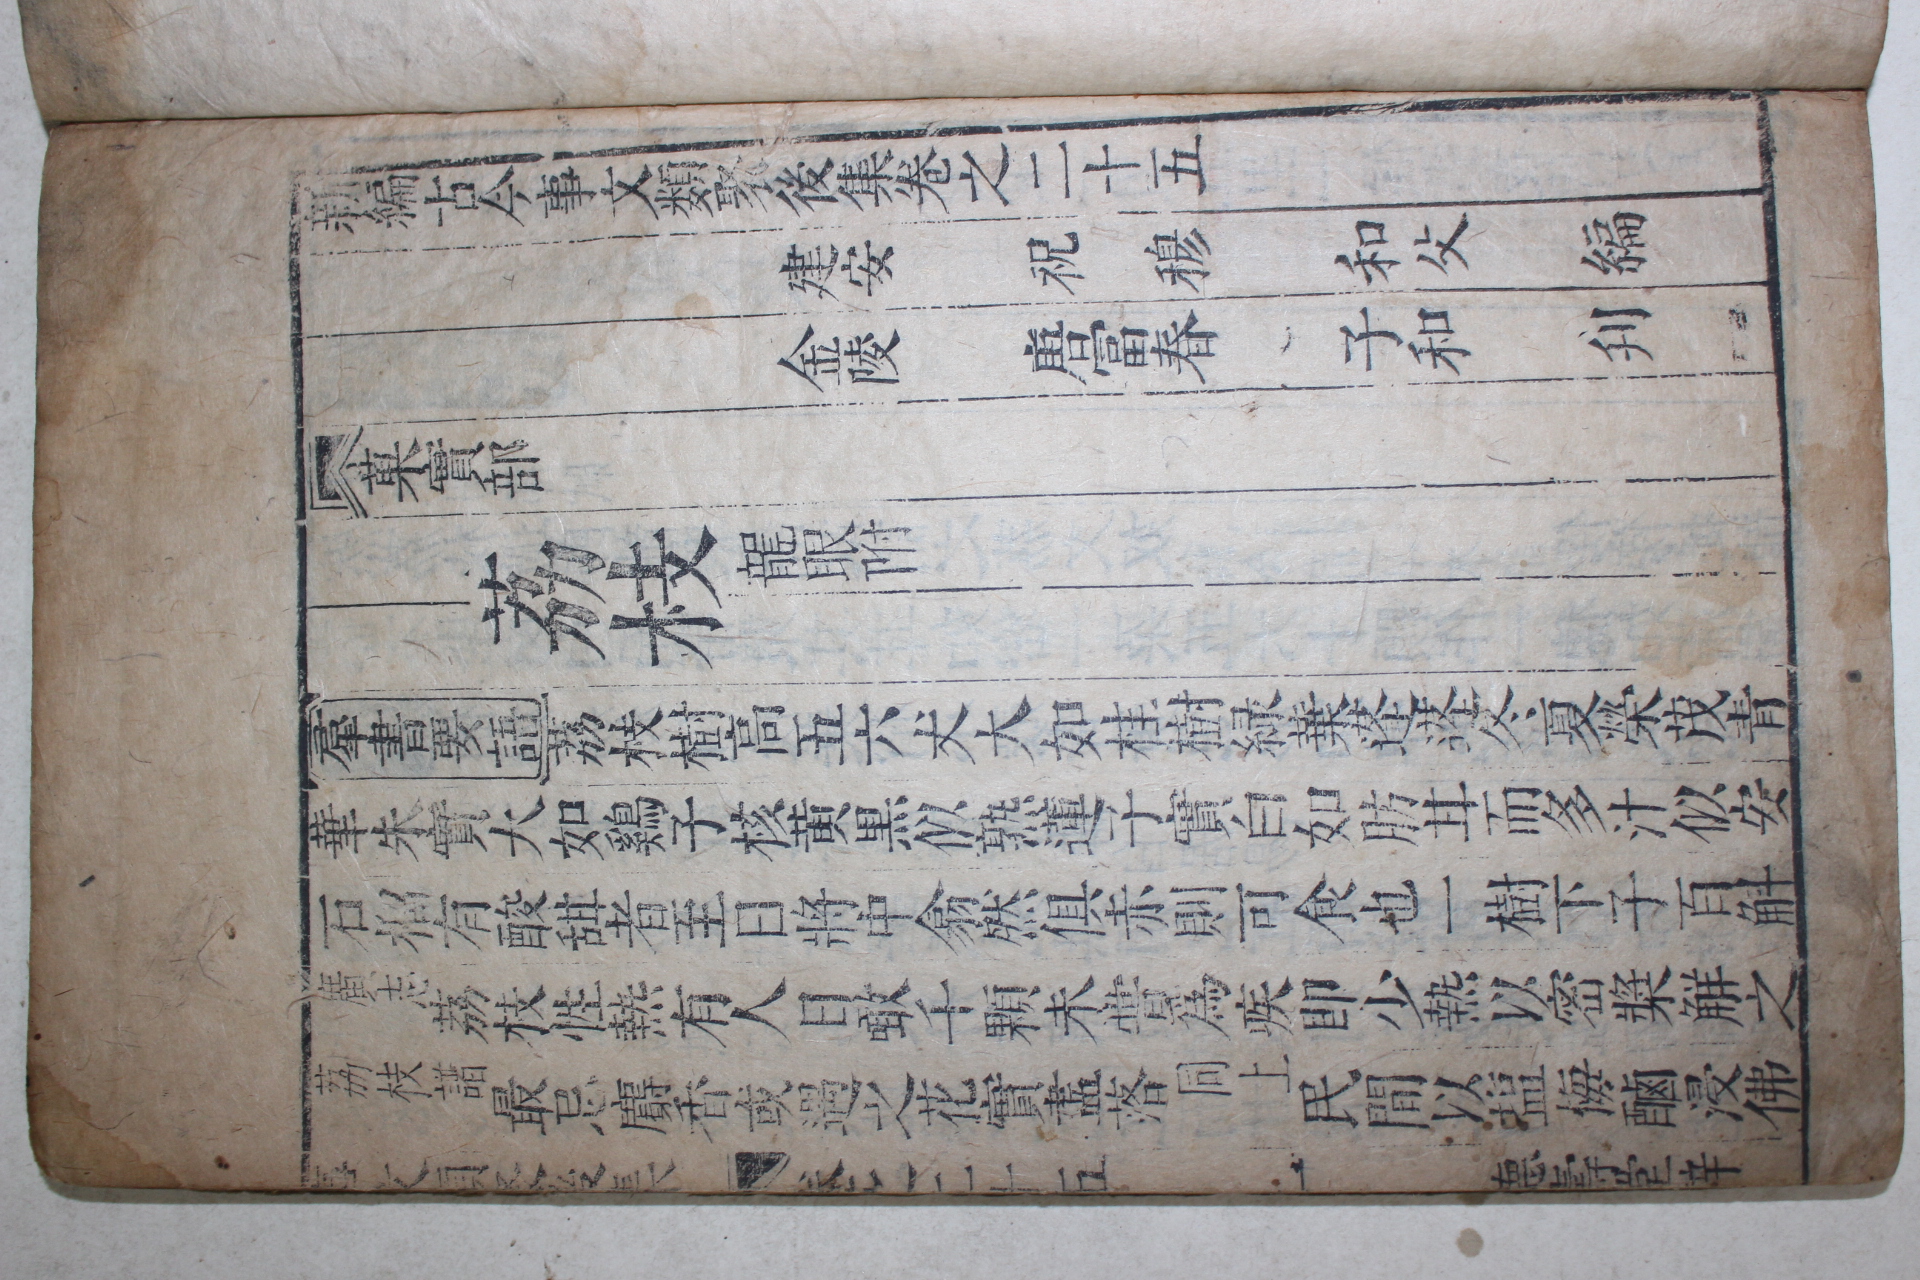 新編古今事文類聚後集卷之二十五
建安 祝穆 和父 編
金陵 唐富春 子和 刋
菓實部
荔枝 龍眼附
羣書要語 荔枝樹高五六丈大如桂樹緑葉蓬蓬冬夏榮茂青
華朱實大如鷄子核黄黒似熟蓮子實白如肪甘而多汁似安
石榴有酸甜者至日將中翕然俱赤則可食也一樹下子百斛
廣志 荔枝性熱有人日噉千顆未嘗爲疾即少熱以密漿解之
荔枝譜 最忌麝香或遇之花實盡落 同上 民間以塩梅鹵浸佛
事文類聚後集 卷之二十五 一 德壽堂梓